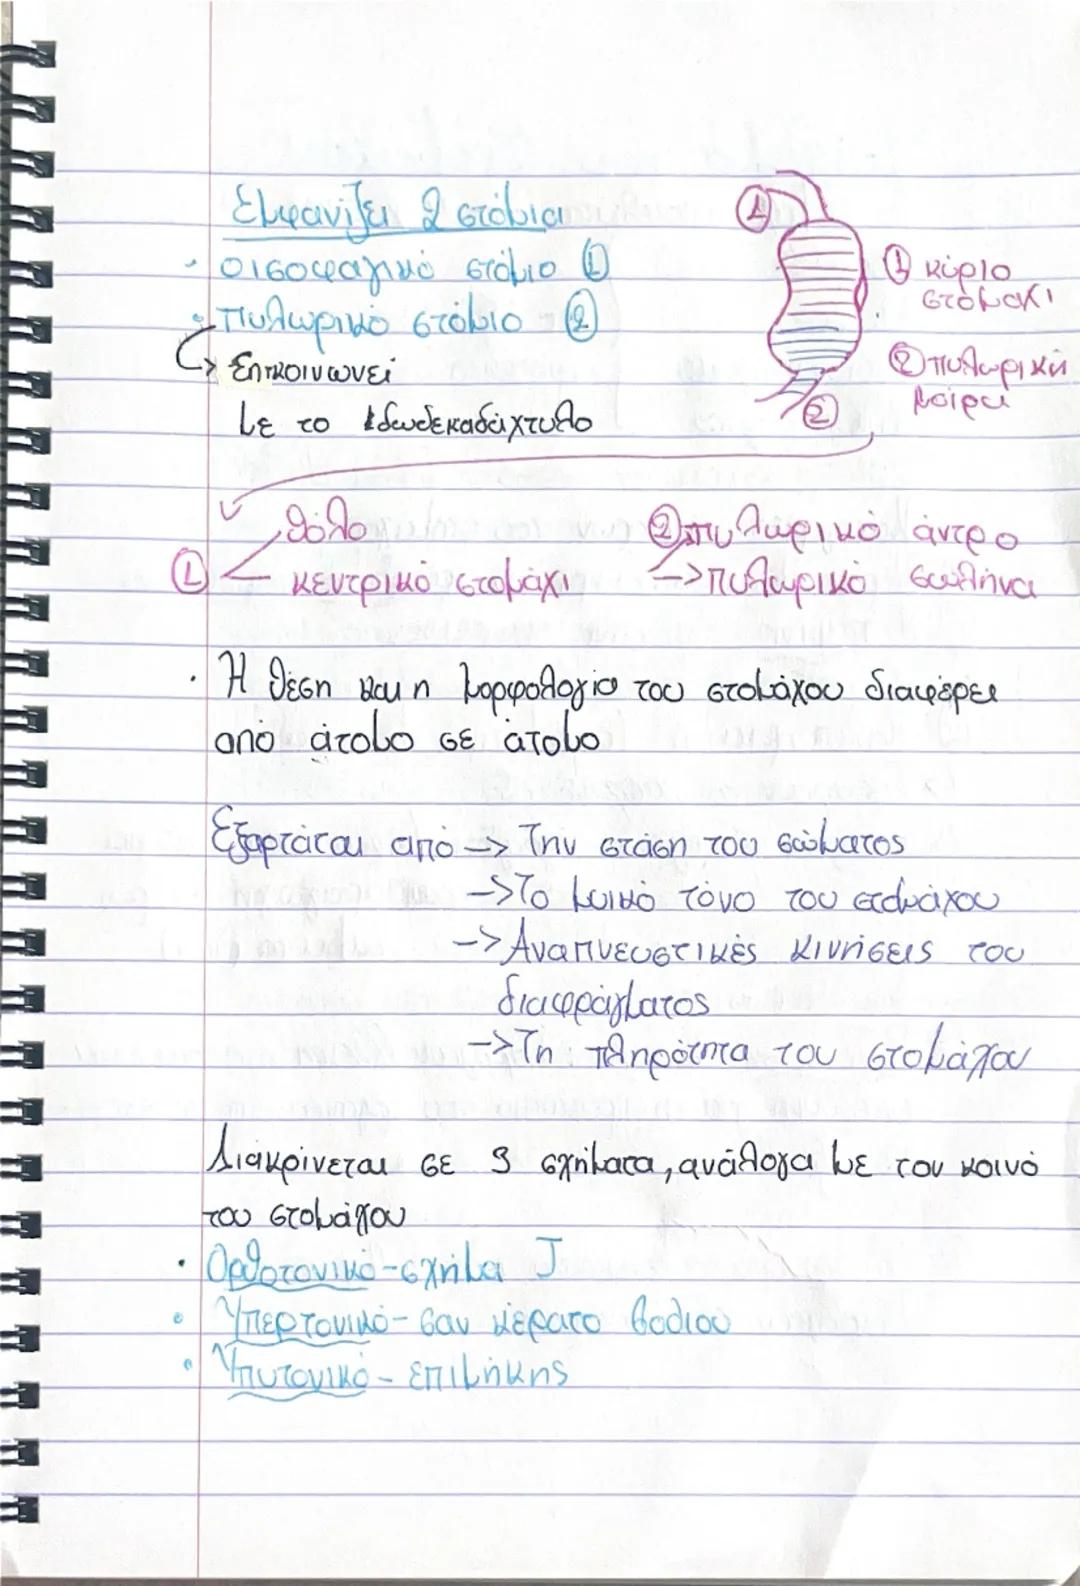 Εμφανίζει 2 στόμια
· οισοφαγικό στόμιο ①
· πυλωρικό στόμιο ②
↳ Επικοινωνεί
με το δωδεκαδάχτυλο
①
① κύριο
στομάχι
② πυλωρική
μοίρα
②
① θόλο
κεντρικό στομάχι
② πυλωρικό άντρο
-> πυλωρικό σωλήνα
· Η θέση και η μορφολογία του στομάχου διαφέρει
από άτομο σε άτομο
Εξαρτάται από -> Την στάση του σώματος
-> Το μυικό τόνο του στομάχου
-> Αναπνευστικές κινήσεις του
διαφράγματος
-> Τη πληρότητα του στομάχου
Διακρίνεται σε 3 σχήματα, ανάλογα με τον κοινό
του στομάχου
· Ορθοτονικό - σχήμα J
· Υπερτονικό - σαν κέρατο βοδιού
· Υπυτονικό - επιμήκης